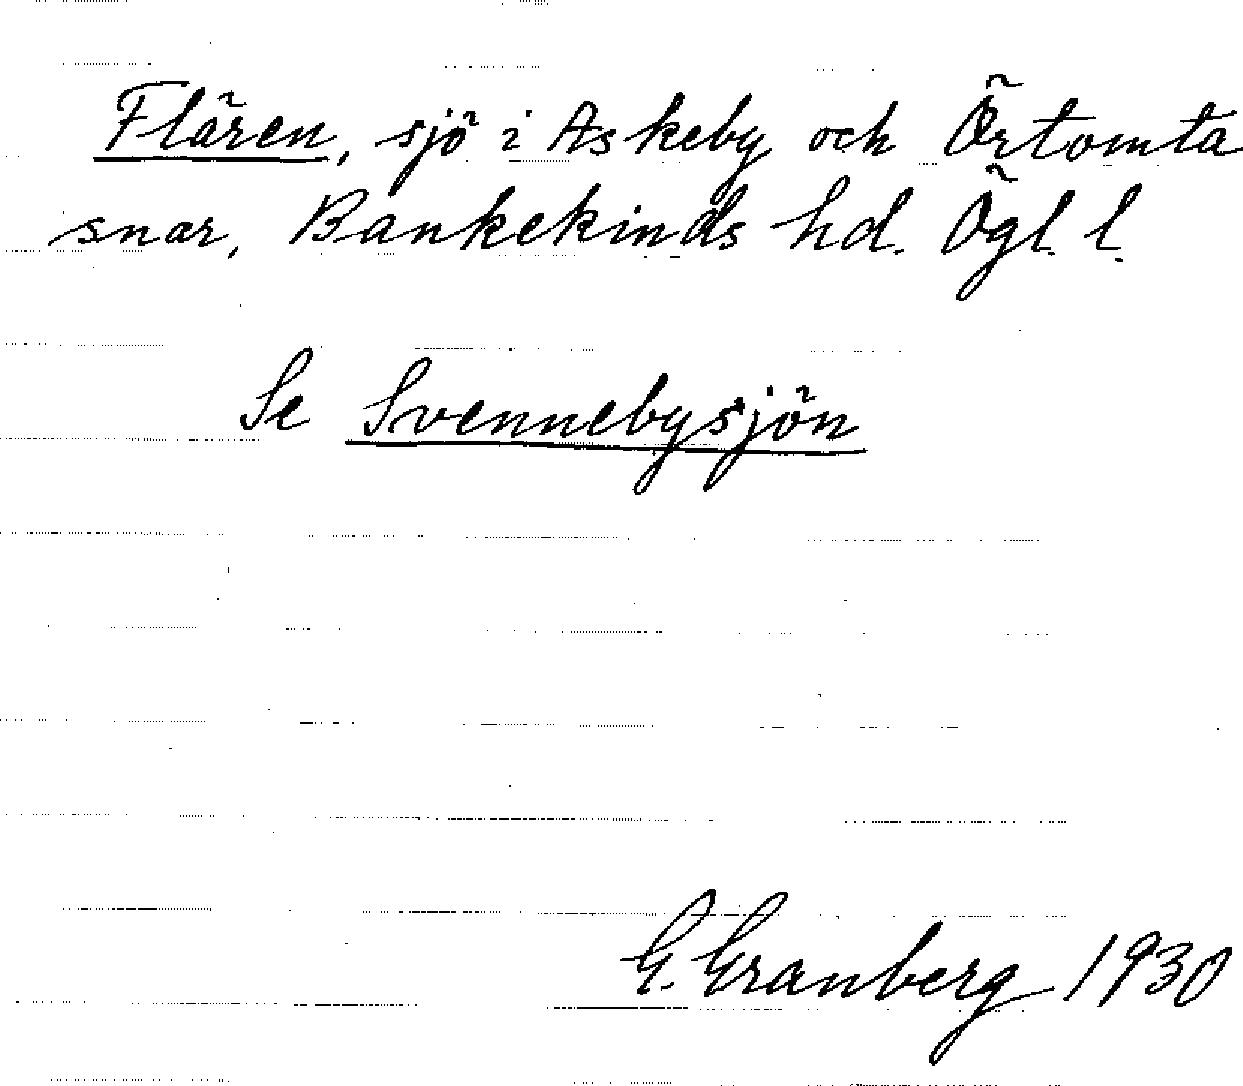 Flären, sjö i Askeby och Örtomta
snar, Bankekinds hd. Ögl. l.
Se Svennebysjön
G. Granberg 1930